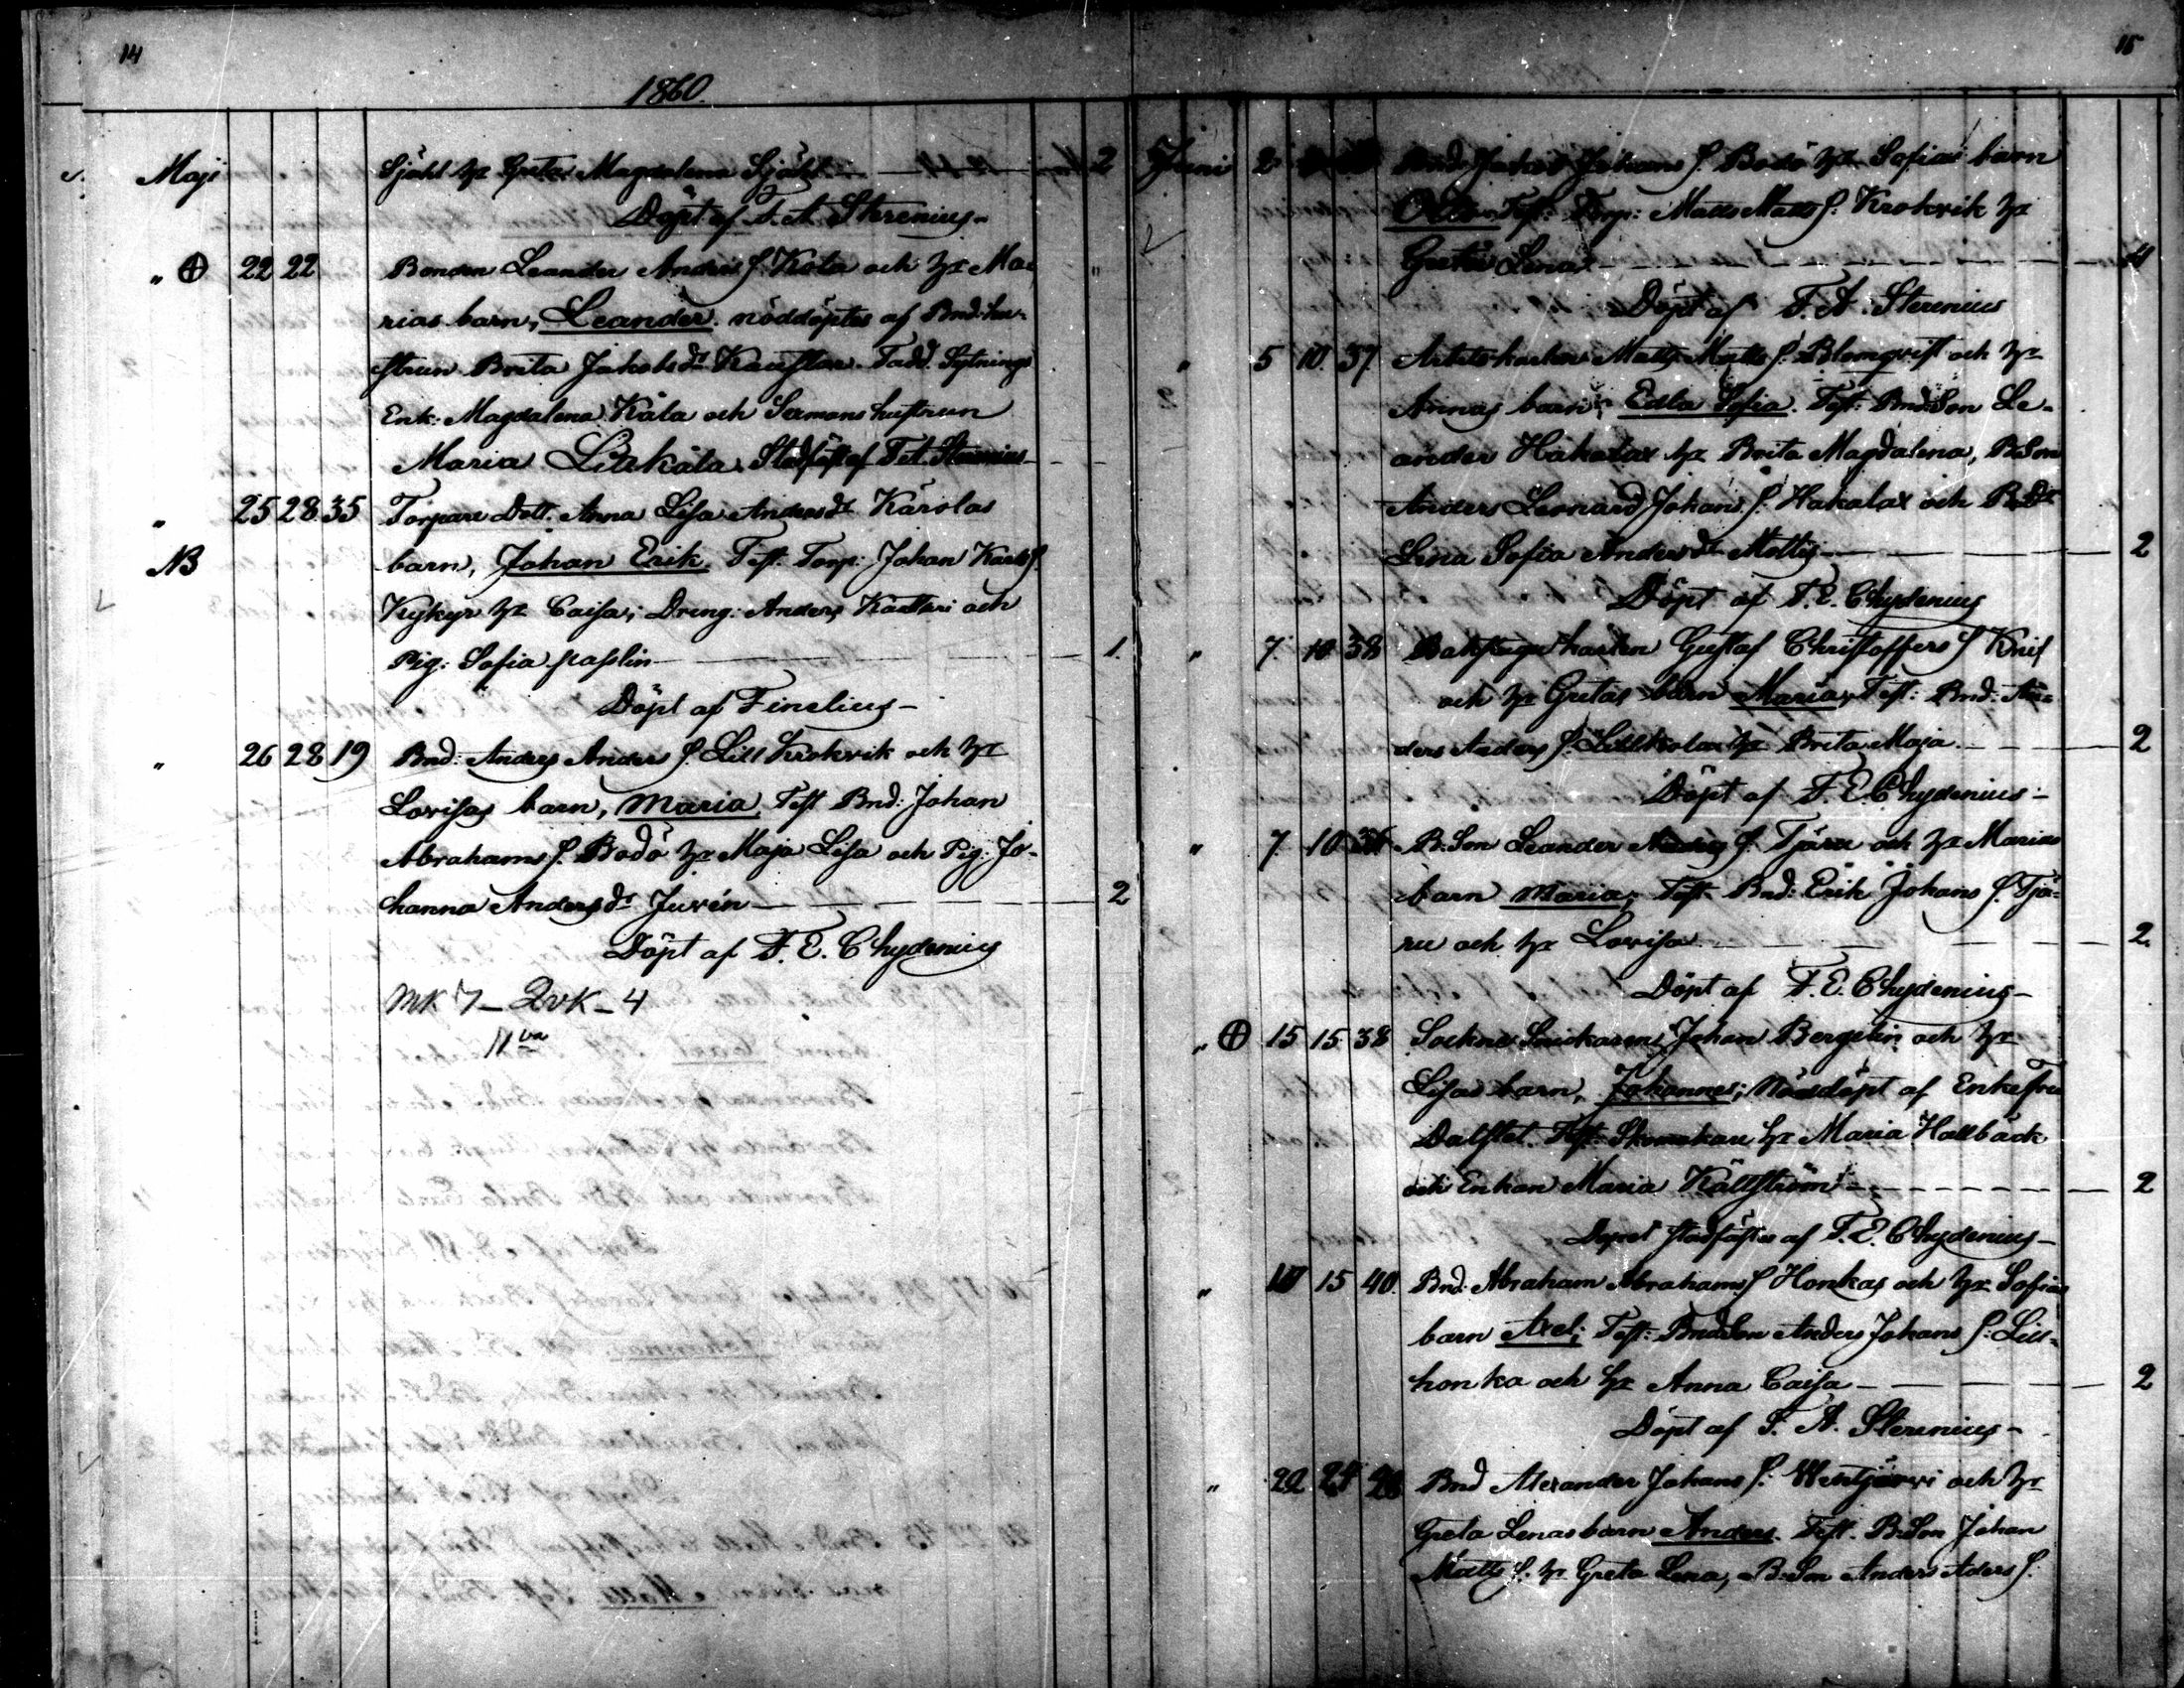 14
1860.
Maji Sjöhl hr Greta Magdalena Sjöhl 2
Döpt af F. A. Stenius
" 22 22 Bonden Leander Anders S. Kola och hr Ma- "
rias barn, Leander. nöddöptes af Bnd: hu-
strun Brita Jakobs dr Fadd. Sytnings
Enk: Magdalena Käla och Sexmans hustrun
Maria Lillkåla. Stadfäst af F. A. Stenius
" 25 28 35 Torpare Dott. Anna Lisa Anders dr Kårolas
NB barn, Johan Erik. Test. Torp: Johan Karls S.
Kykyr hr Caisa; Dreng: Anders och
Pig: Sofia 1.
Döpt af Finelius
" 26 28 19 Bnd: Anders Anders S. Lill Krokvik och hr
Lovisas barn, Maria, Test Bnd: Johan
Abrahams S. Bodö hr Maja Lisa och Pig: Jo-
hanna Anders dr Juvén 2
Döpt af F. E. Chydenius
MK 7 - QvK - 4
11 va
15
Juni 2 Bnd: Jakob Johans S. Bodö hr Sofias barn
Test: Torp: Matts Matts S. Krokvik hr
Greta Lena 4
Döpt af F. A. Stenius
" 5 10 37 Arbets karlen Matts Matts S. Blomqvist och hr
Annas barn; Edla Sofia. Test: Bnd: Son Le-
ander Hakalax hr Brita Magdalena, B.Son
Anders Leonard Johans S. Hakalax och B.Dr
Lina Sofia Anders dr Mottis 2
Döpt af F. E. Chydenius
" 7. 10 38 Backstugu karlen Gustaf Christoffers S Knif
och hr Gretas barn Maria, Test: Bnd: An-
ders Anders S. Lillkola hr Brita Maja 2
Döpt af F. E. Chydenius
" 7. 10 B.Son Leander Anders S. Tjäru och hr Marias
barn Maria; Test Bnd: Erik Johans S. Tjä-
ru och hr Lovisa 2.
Döpt af F. E. Chydenius
" 15 15 38 Sockne Snickaren Johan Bergelin och hr
Lisas barn, Johannes; Nöddöpt af Enkefru
Dalstet. Test: Skomakare hr Maria Hallbäck
och Enkan Maria Källström 2
Dopet stadfästes af F. E. Chydenius
" 15 40. Bnd: Abraham Abrahams S Honkas och hr Sofias
barn Axel; Test: Bnd:Son Anders Johans S: Lill-
honka och hr Anna Caisa 2
Döpt af F. A. Stenius
" 22 24 Bnd Alexander Johans S. Wentjärvi och hr
Greta Lenas barn Anders. Test. B:Son Johan
Matts S. hr Greta Lena, B:Son Anders Aders S.